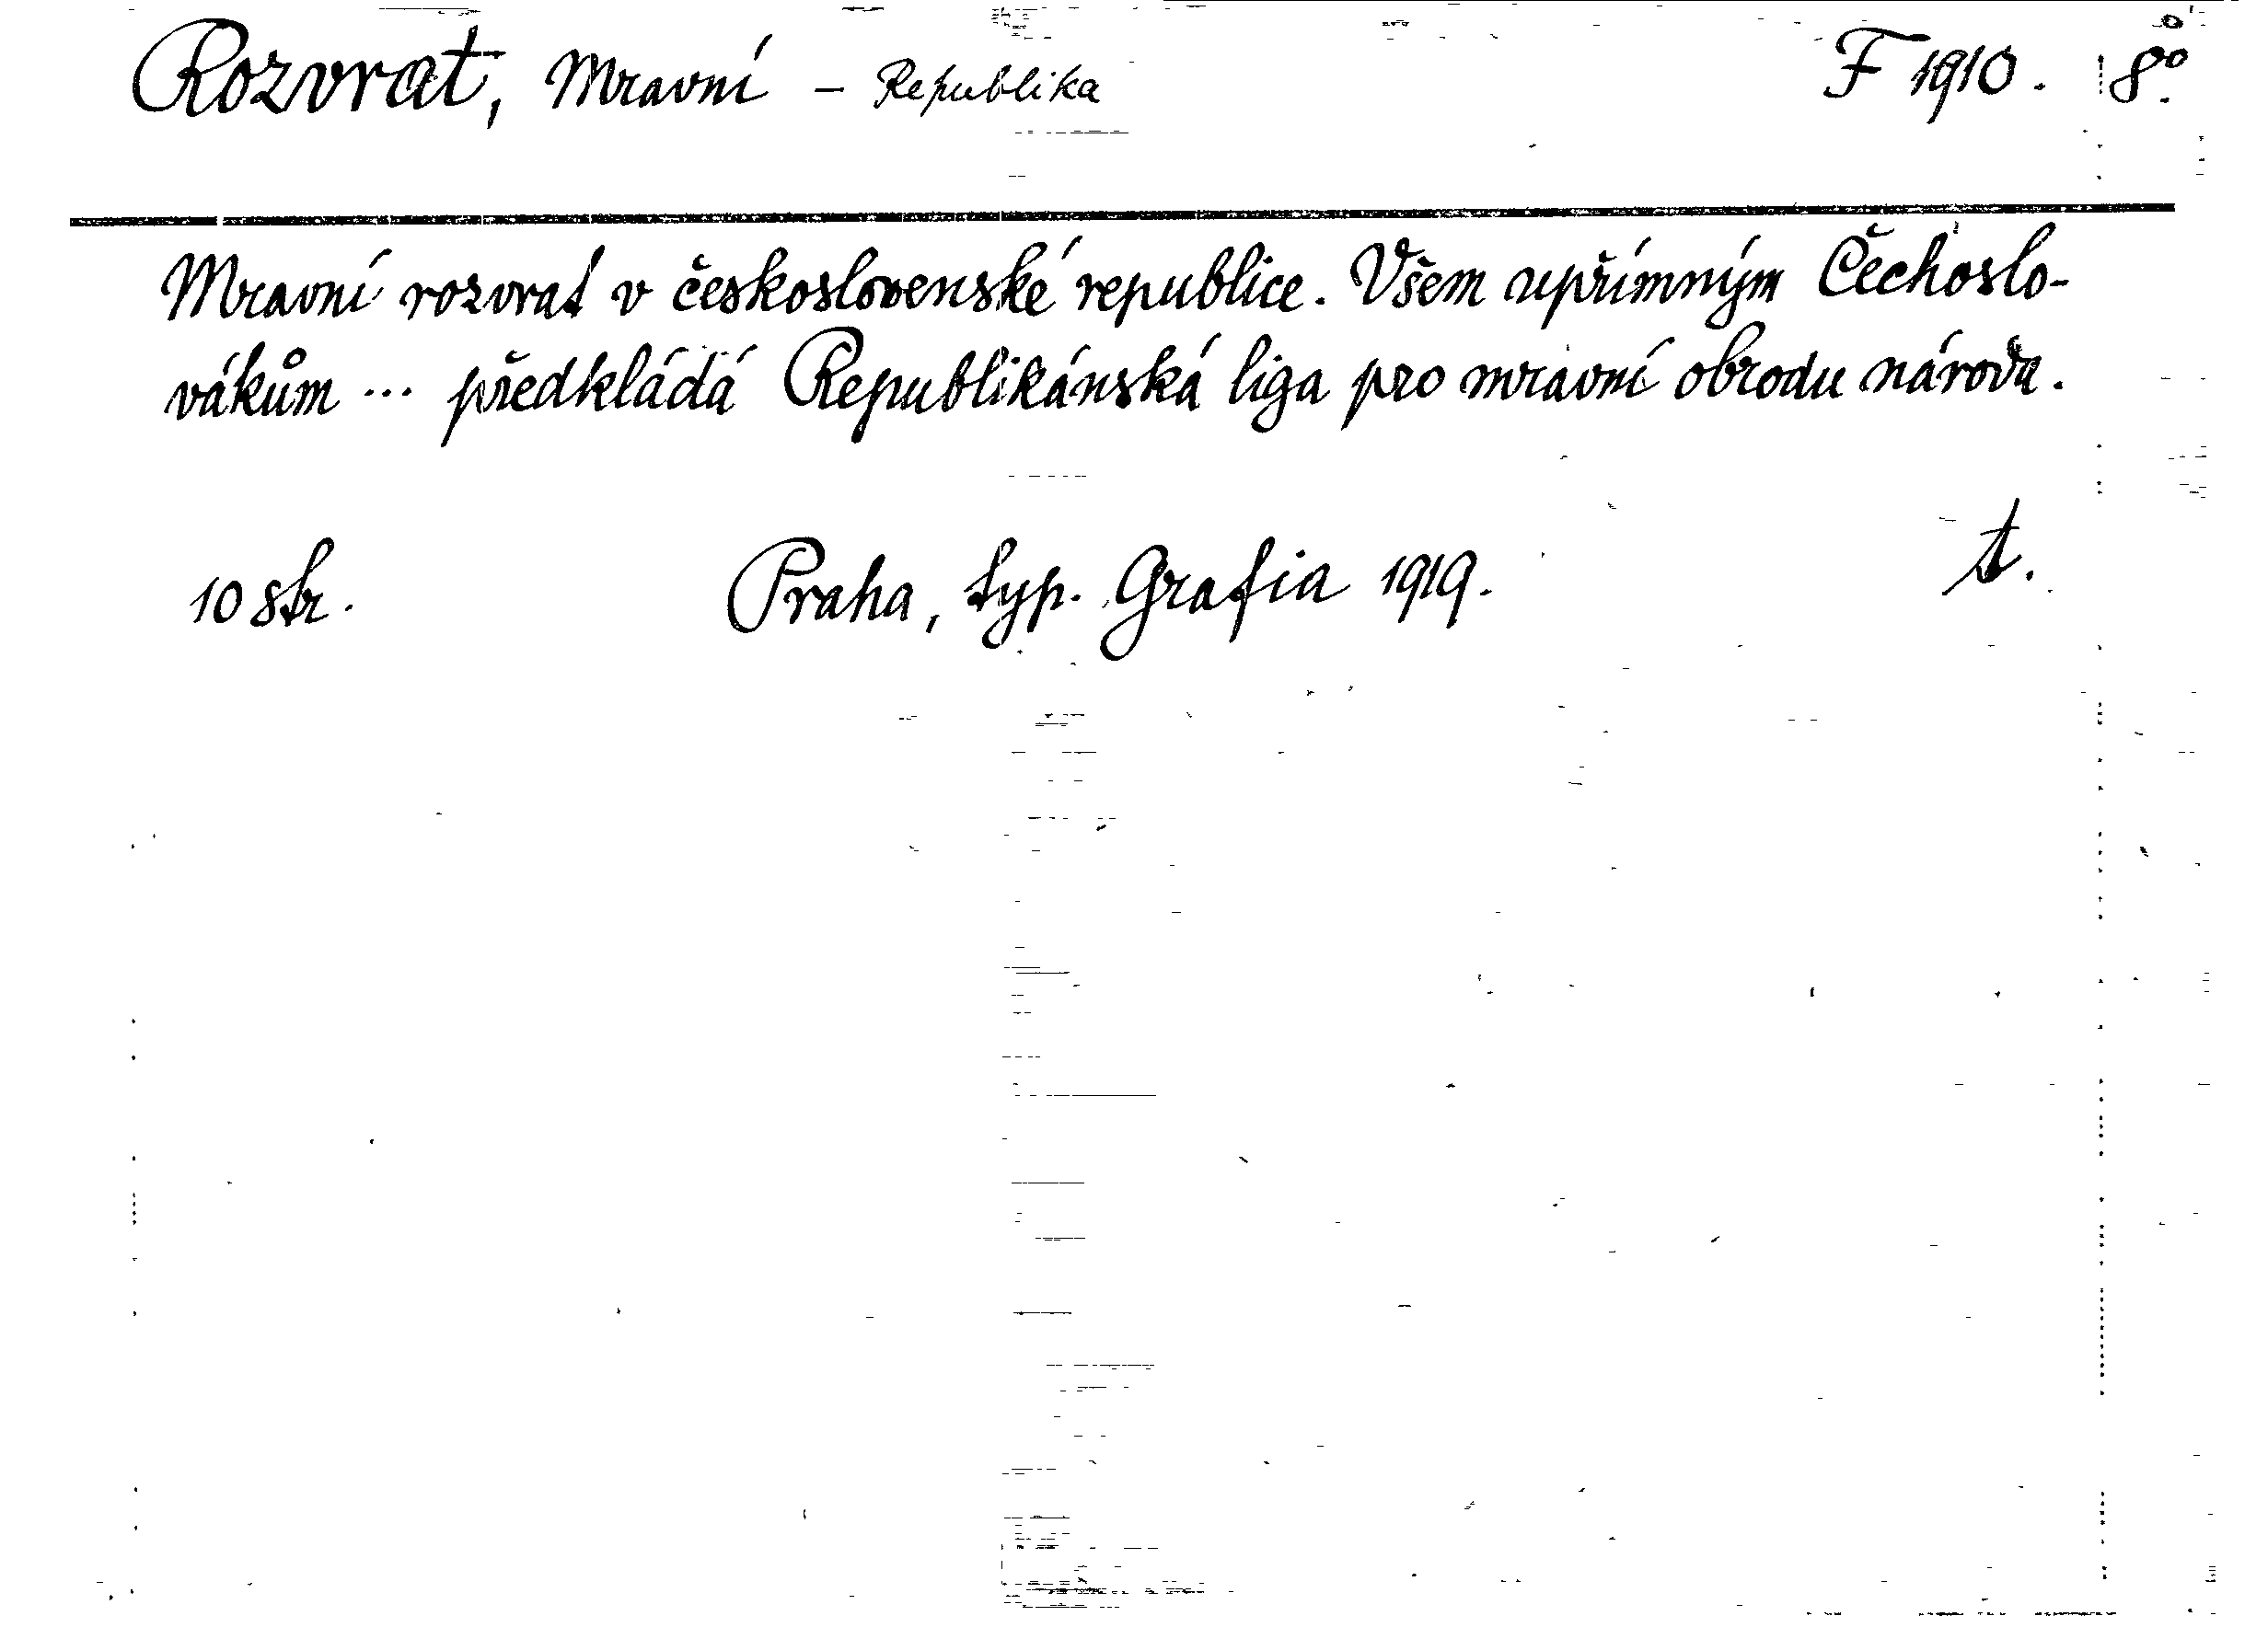 Rozvrat, Mravní – Republika F 1910. 8°.
Mravní rozvrat v československé republice. Všem upřímným Čechoslo-
vákům ... předkládá Republikánská liga pro mravní obrodu národa.
10 str. Praha, typ. Grafia 1919. t.